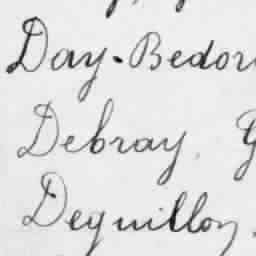 Day-Bedor
Debray, G
Deguillon,